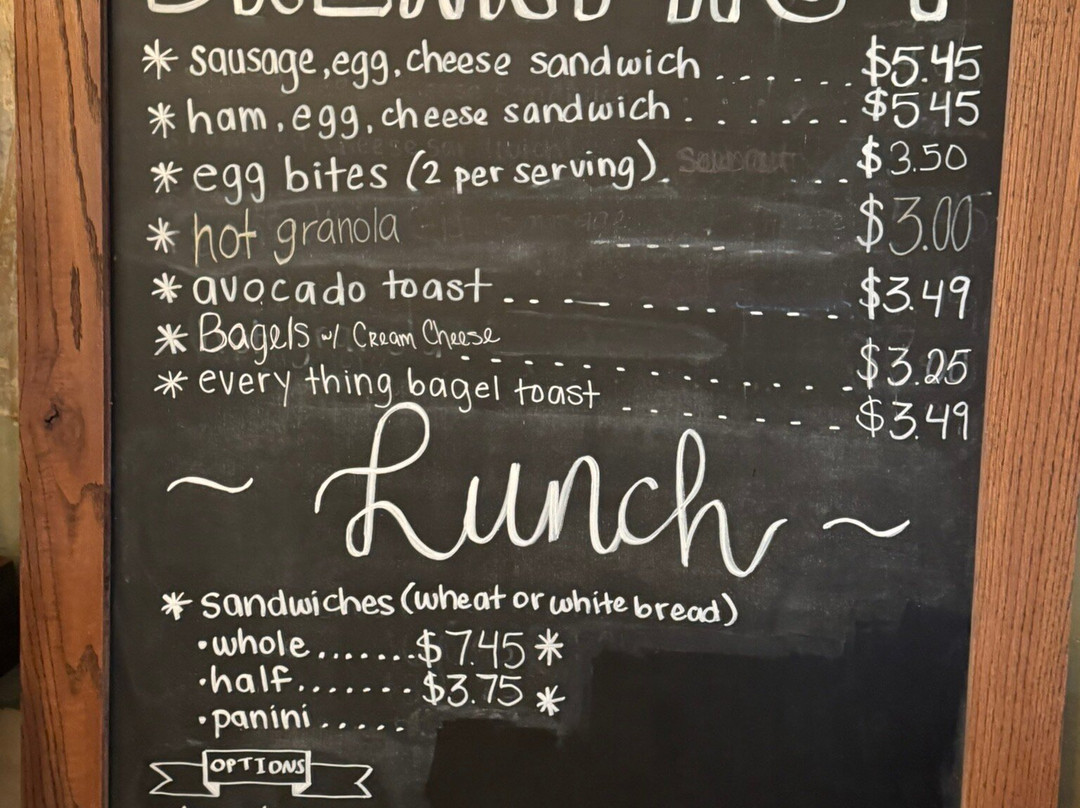 * sausage, egg, cheese sandwich ...... $5.45
* ham, egg, cheese sandwich ....... $5.45
* egg bites (2 per serving). ... $3.50
* hot granola $3.00
* avocado toast $3.49
* Bagels w/ Cream Cheese $3.25
* every thing bagel toast $3.49
~ Lunch ~
* sandwiches (wheat or white bread)
• whole ....... $7.45 *
• half ....... $3.75 *
• panini .....
OPTIONS